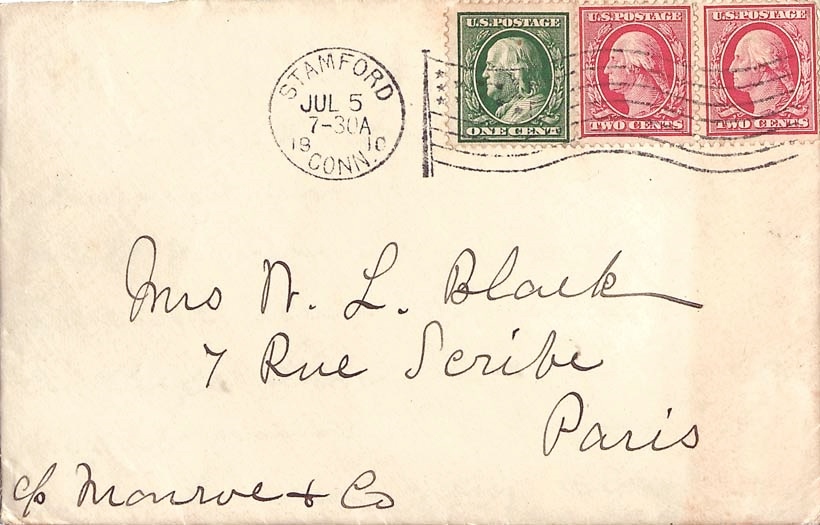 U.S. POSTAGE
ONE CENT
U.S. POSTAGE
TWO CENTS
U.S. POSTAGE
TWO CENTS
STAMFORD
JUL 5
7-30A
19 10
CONN.
Mrs N. L. Black
7 Rue Scribe
Paris
c/o Monroe & Co